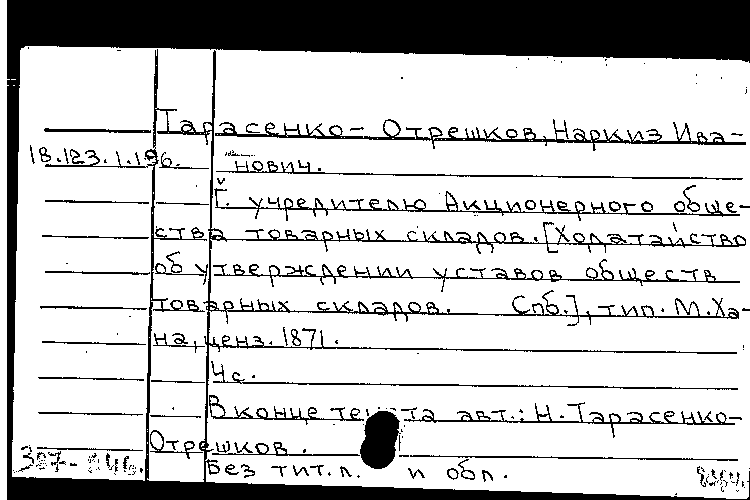 Тарасенко- Отрешков, Наркиз Ива-
18.123.1.196. нович.
Г. учредителю Акционерного обще-
ства товарных складов. [Ходатайство
об утверждении уставов обществ
товарных складов. Спб.], тип. М. Ха-
на, ценз. 1871.
4 с.
В конце текста авт.: Н. Тарасенко-
Отрешков.
Без тит. л. и обл.